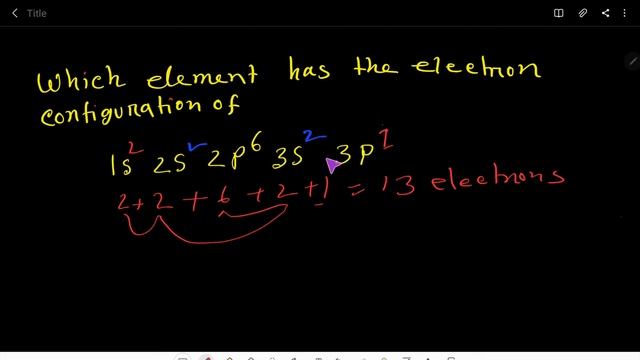 Title
Which element has the electron
configuration of
1s² 2s² 2p⁶ 3s² 3p¹
2 + 2 + 6 + 2 + 1 = 13 electrons